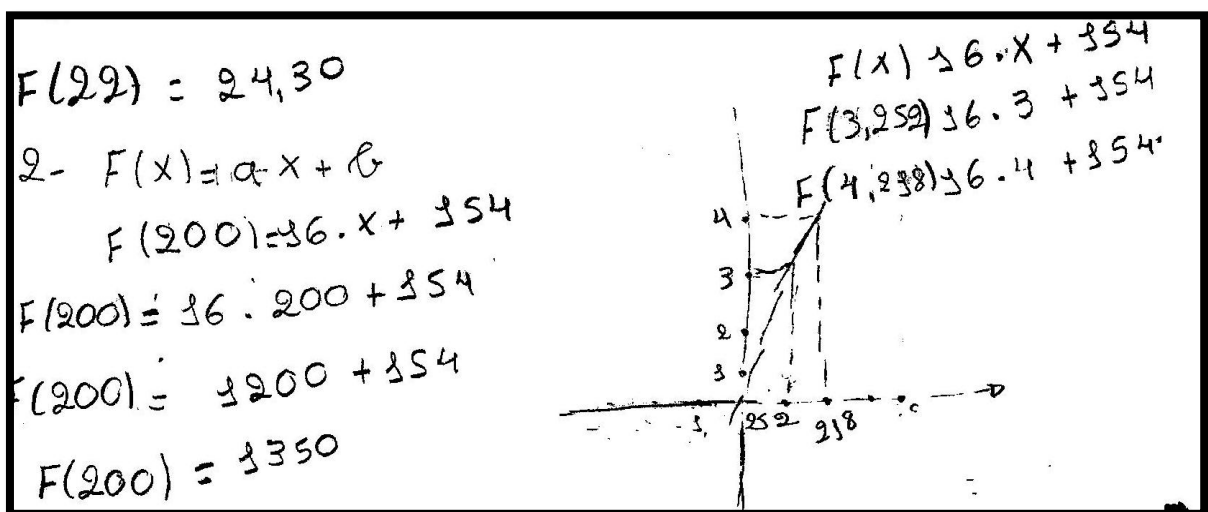 F(22) = 24,30
2- F(x) = a x + b
F(200) = 16 . x + 154
F(200) = 16 . 200 + 154
F(200) = 1200 + 154
F(200) = 1350
F(x) 16 . x + 154
F(3,252) 16 . 3 + 154
F(4,218) 16 . 4 + 154
4
3
2
1
1, 252 218